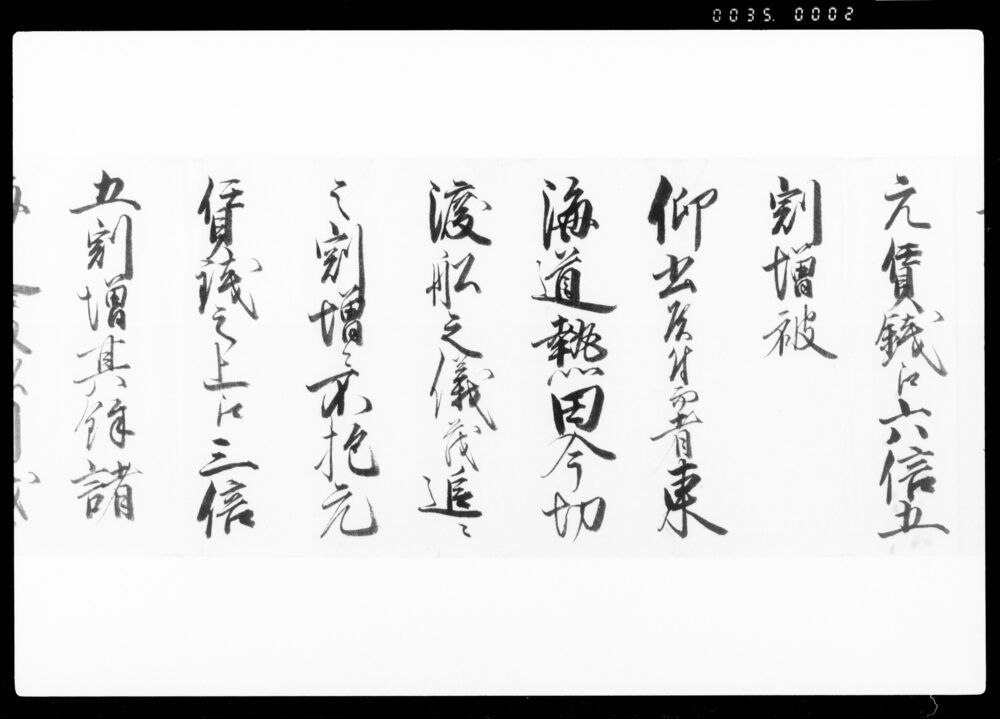 0035. 0002
元賃銭江六倍五
割増被
仰出候付而者東
海道熱田今切
渡船之儀茂追々
之割増ニ不抱元
賃銭之上江三倍
五割増其餘諸